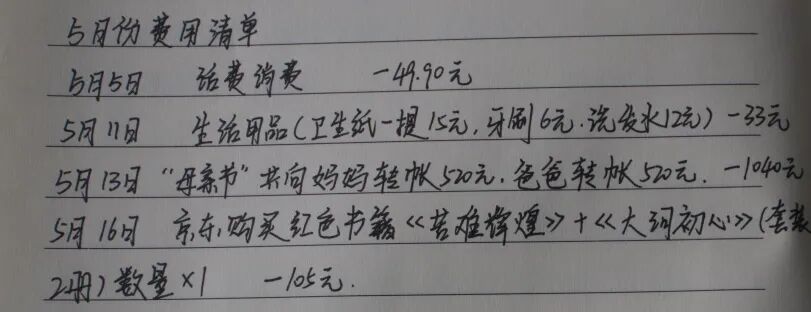 5月份费用清单
5月5日 话费消费 -49.90元
5月11日 生活用品(卫生纸一提15元,牙刷6元.洗发水12元) -33元
5月13日 "母亲节"共向妈妈转帐520元.爸爸转帐520元. -1040元
5月16日 京东,购买红色书籍《苦难辉煌》+《大河初心》(套装
2册)数量×1 -105元.